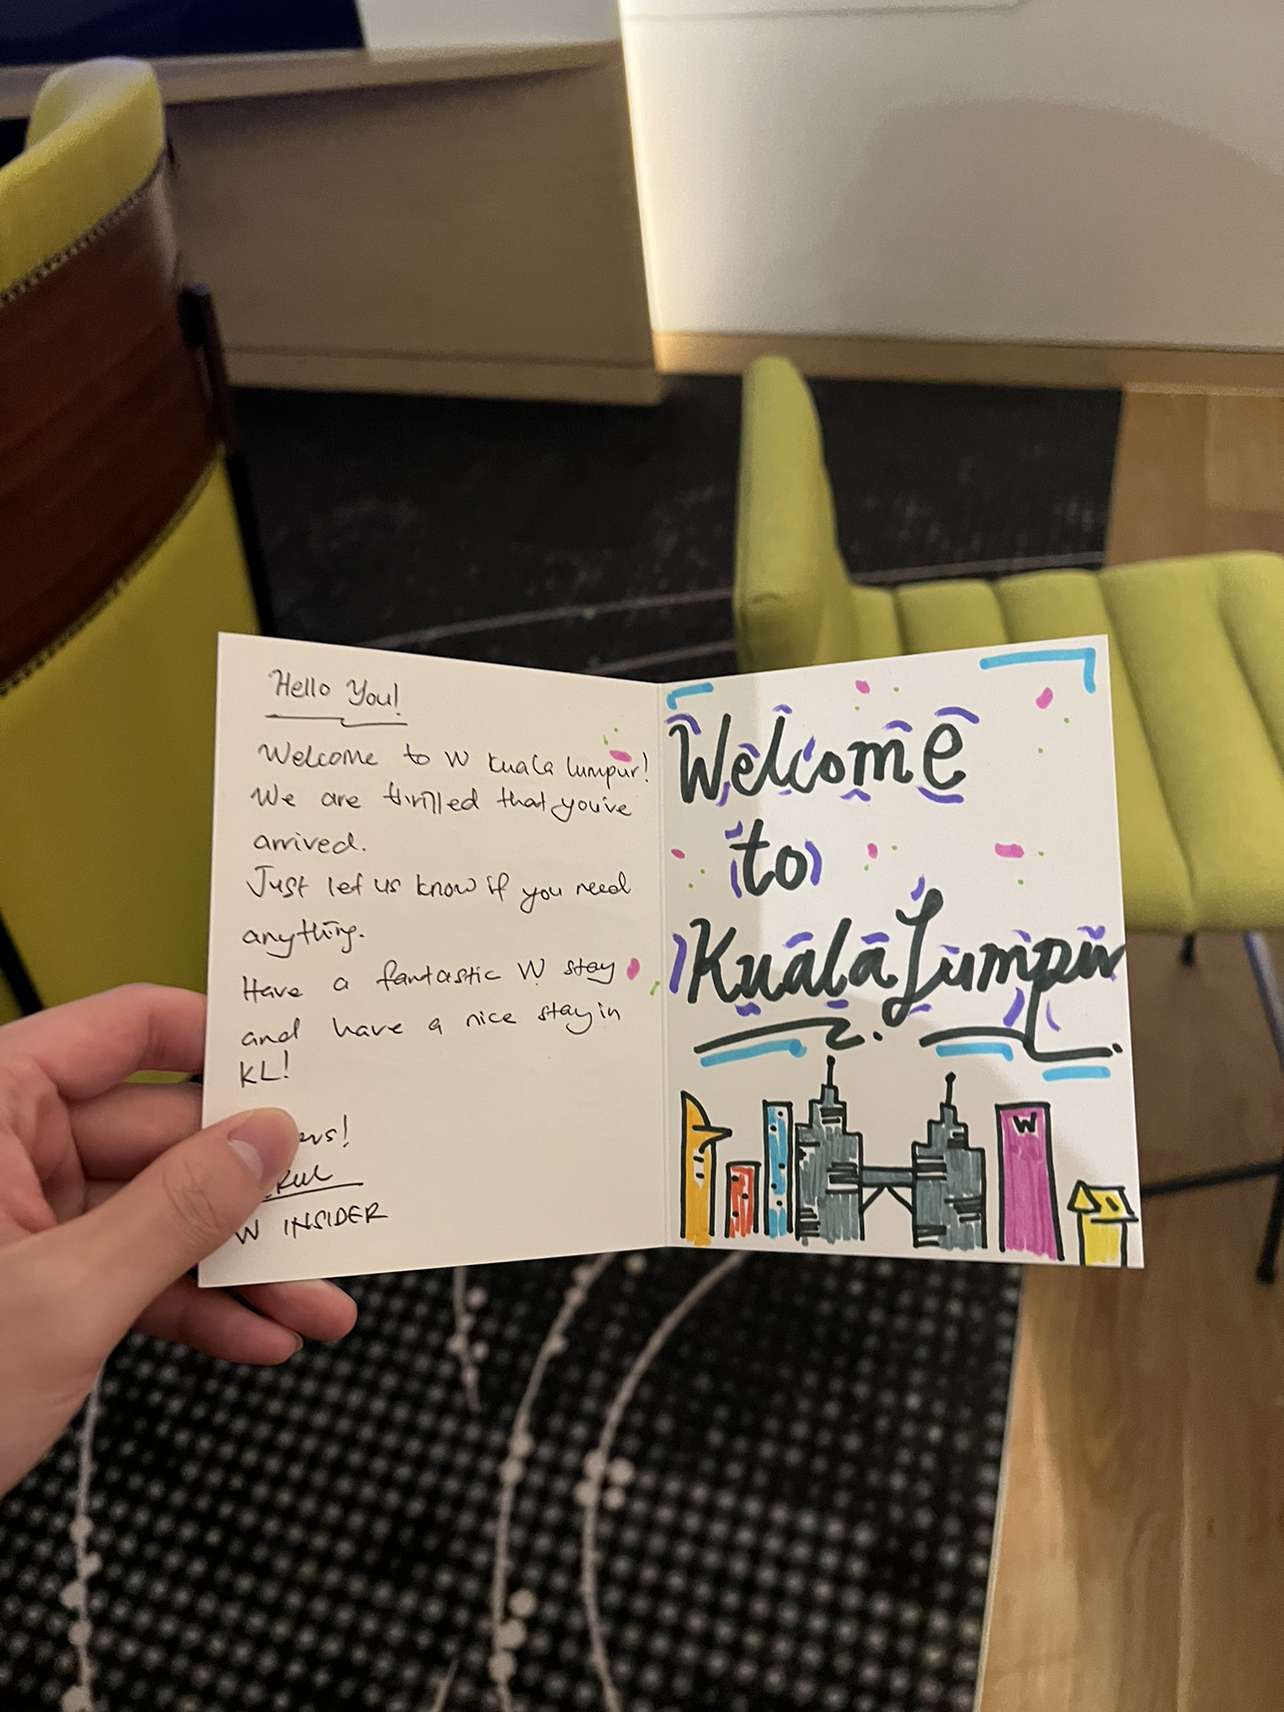 Hello You!
Welcome to W Kuala Lumpur!
We are thrilled that you've
arrived.
Just let us know if you need
anything.
Have a fantastic W stay
and have a nice stay in
KL!
W INSIDER
Welcome
to
Kuala Lumpur
W